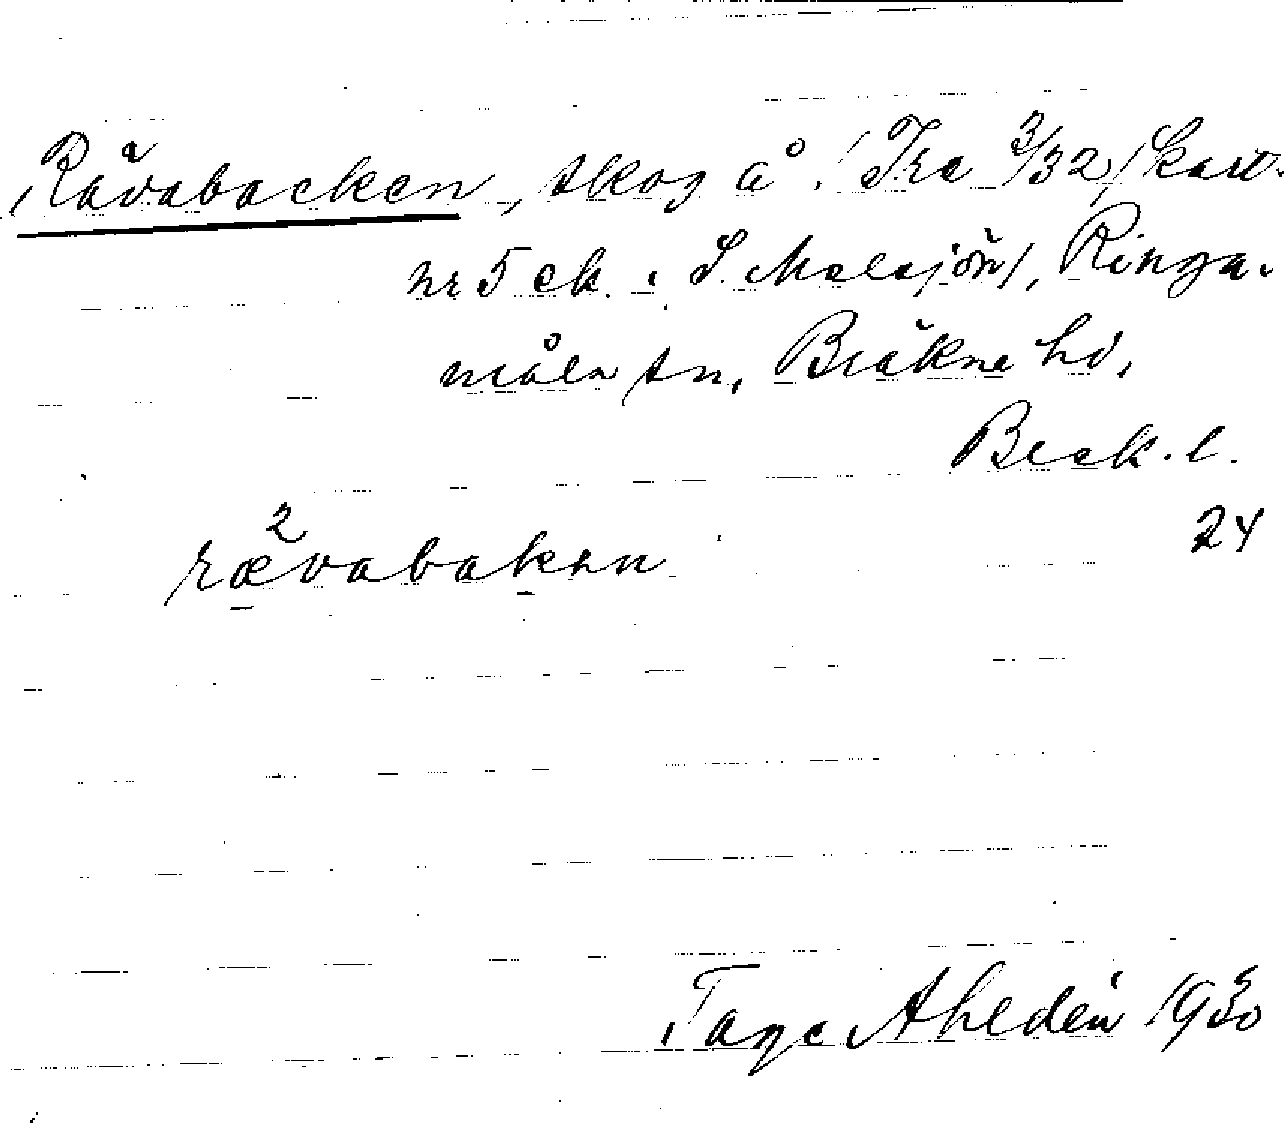 Rävabacken, skog å. (Tra 3/32, kart.
nr 5 ek. i S. Målsjön), Ringa-
måla sn, Bräkne hd,
Blek. l.
24
rævabakən
Tage Ahldén 1930